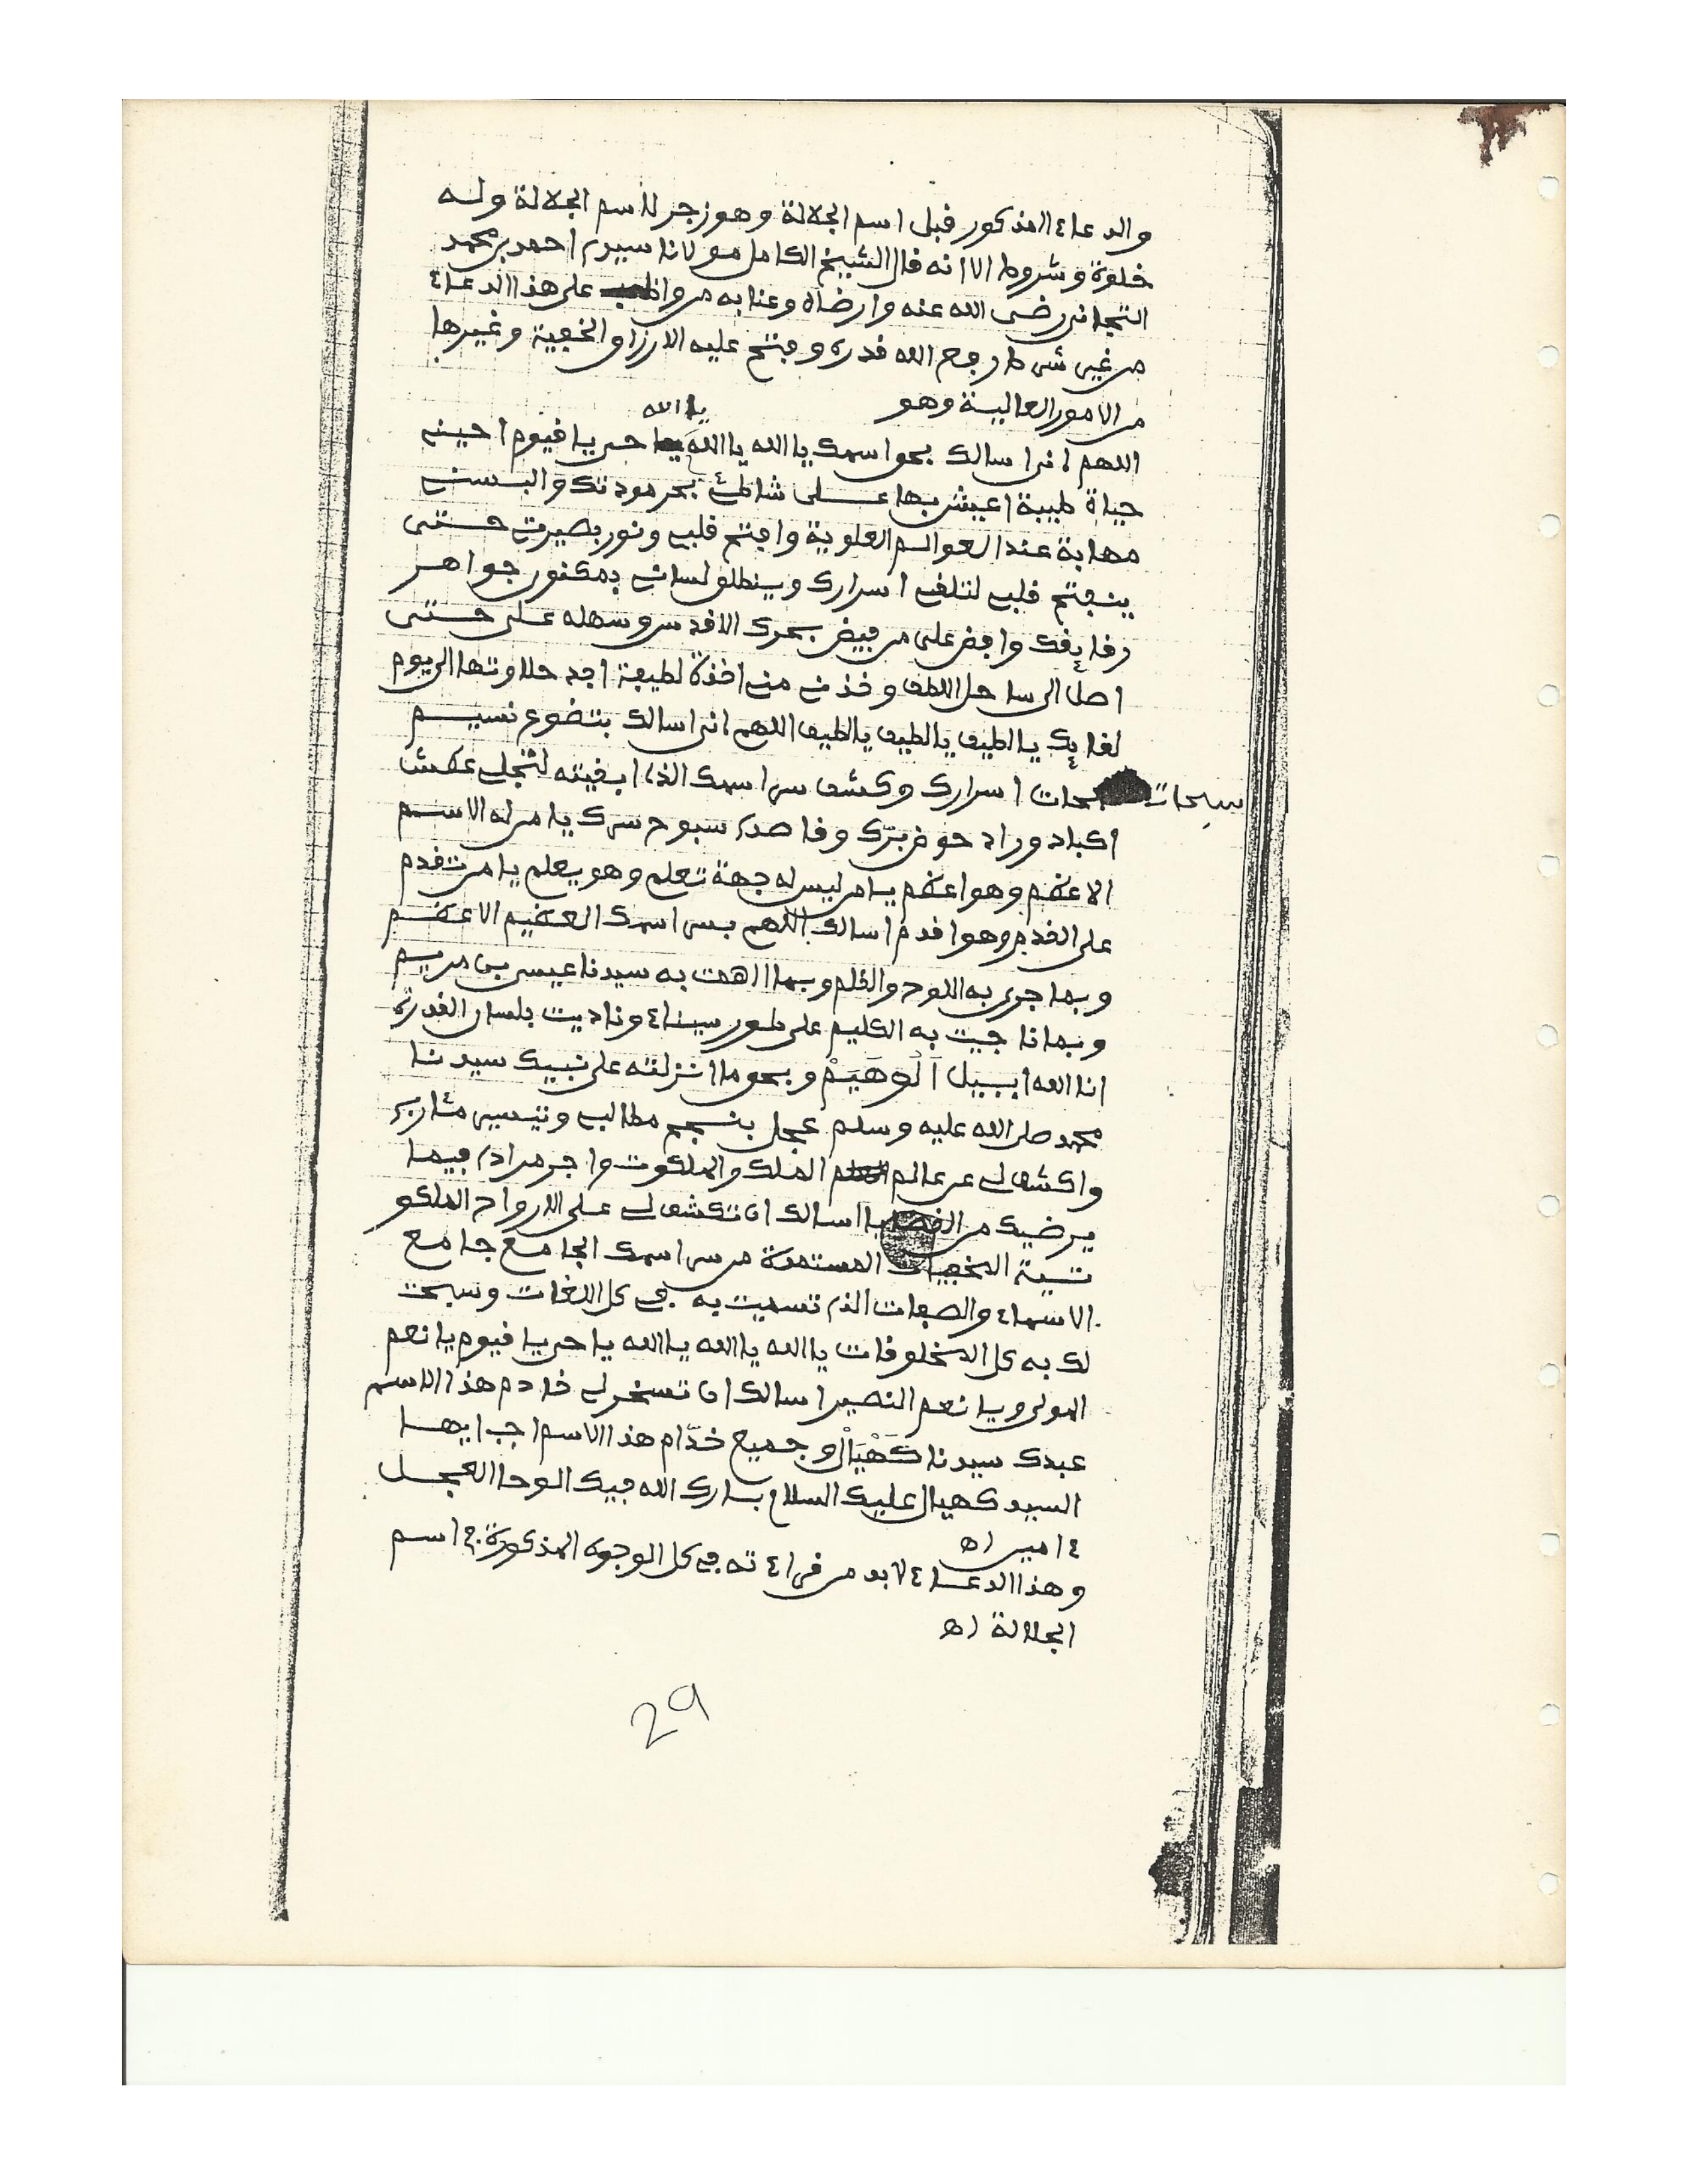 والدعاء المذكور قبل اسم الجلالة وهو زجر للاسم الجلالة وله
خلوة وشروط الا انه قال الشيخ الكامل مولانا سيدي احمد بن محمد
التجاني رضى الله عنه وارضاه وعنا به من واظب على هذا الدعاء
من غير شرط رفع الله قدره وفتح عليه الارزاق الخفية وغيرها
من الامور العالية وهو
يا الله
اللهم اني اسالك بحق اسمك يا الله يا الله يا حي يا قيوم احيني
حياة طيبة اعيش بها على شاطئ بحر مودتك والبسني
مهابة عند العوالم العلوية وافتح قلبي ونور بصيرتي حتى
ينفتح قلبي لتلقي اسرارك وينطلق لساني بمكنون جواهر
رقائقك وافض علي من فيض بحرك الاقدس وسهله علي حتى
اصل الى ساحل اللطف وخذ مني اخذة لطيفة اجد حلاوتها الى يوم
لقائك يا لطيف يا لطيف يا لطيف اللهم اني اسالك بتضوع نسيم
سبحات اسرارك وكشف سر اسمك الذي ابقيته لتجلي عطش
اكباد وراد حوض برّك وقاصدي سبوح سرك يا من له الاسم
الاعظم وهو اعظم يا من ليس له جهة تعلم وهو يعلم يا من تقدم
على القدم وهو اقدم اسالك اللهم بسر اسمك العظيم الاعظم
وبما جرى به اللوح والقلم وبما الهمت به سيدنا عيسى بن مريم
وبما ناجيت به الكليم على طور سيناء وناديت بلسان القدرة
انا الله ابييل اَلُوهَيَمْ وبحق ما انزلته على نبيك سيدنا
محمد صلى الله عليه وسلم عجل بنجح مطالبي وتيسير مئاربي
واكشف لي عن عالم الملك والملكوت واجر مرادي فيما
يرضيك من اسالك ان تكشف لي على الارواح الملكو
تية المخفيات المستمدة من سر اسمك الجامع جامع
الاسماء والصفات الذي تسميت به في كل اللغات وسبحت
لك به كل المخلوقات يا الله يا الله يا الله يا حي يا قيوم يا نعم
المولى ويا نعم النصير اسالك ان تسخر لي خادم هذا الاسم
عبدك سيدنا كَهْيَالْ وجميع خدّام هذا الاسم اجب ايها
السيد كهيال عليك السلام بارك الله فيك الوحا العجل
ءامين اه
وهذا الدعاء لابد من قراءته في كل الوجوه المذكورة في اسم
الجلالة اه
29